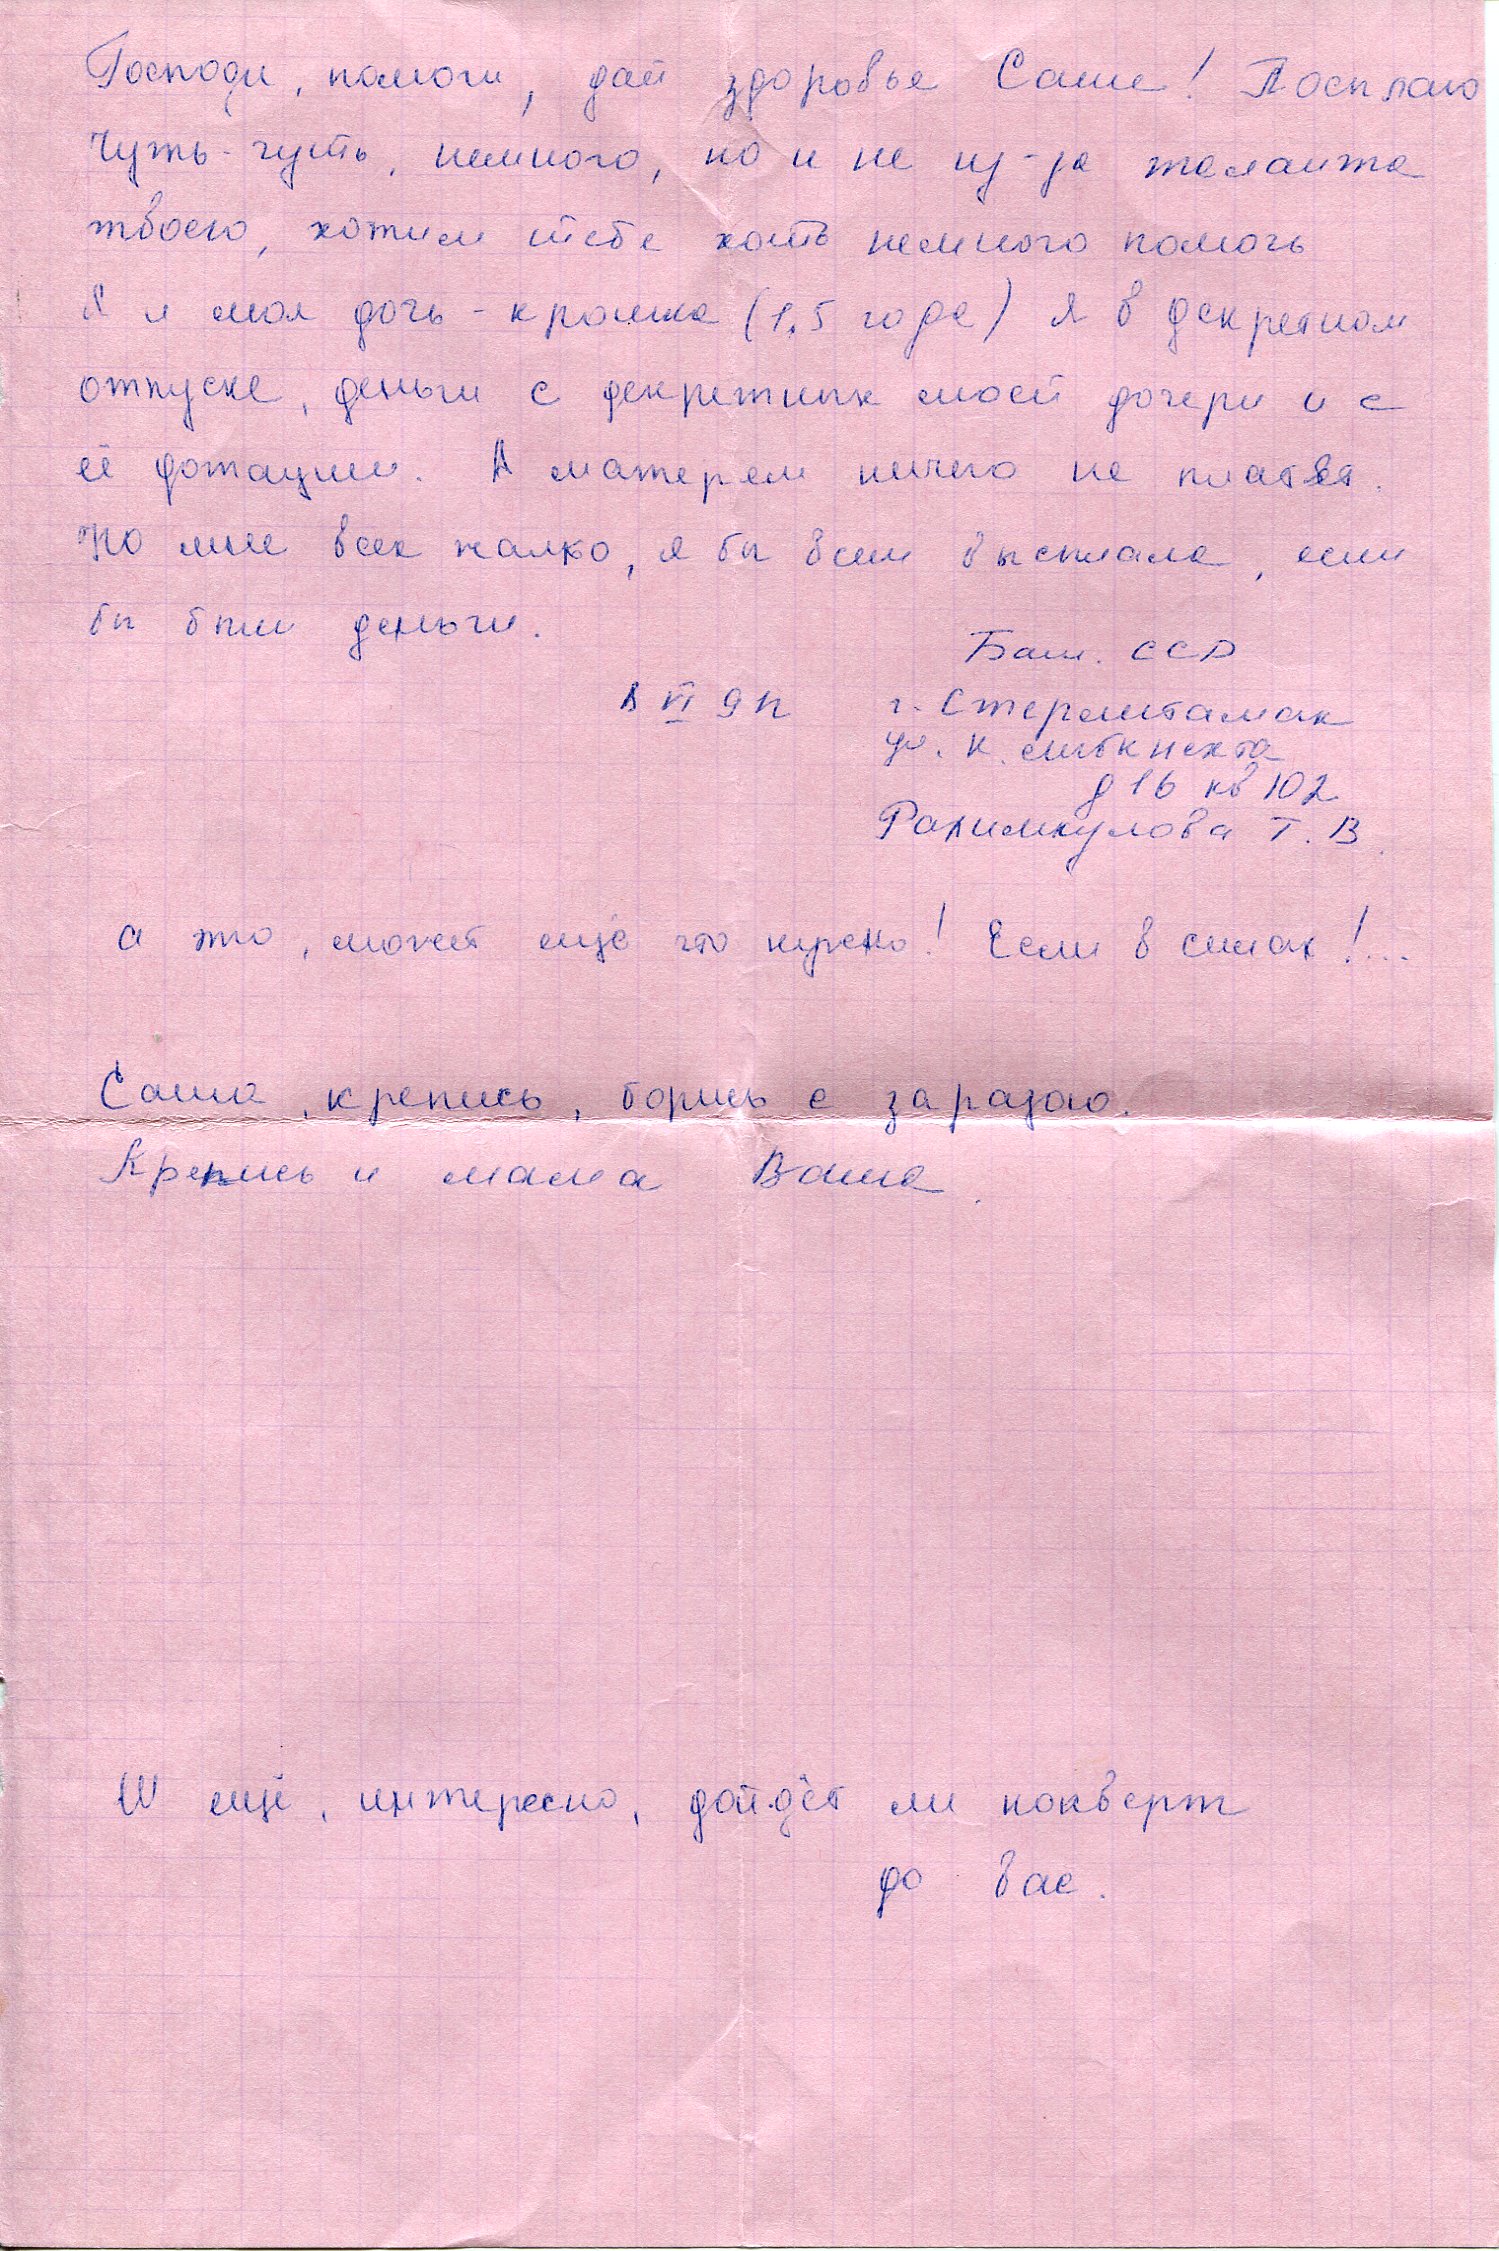 Господи, помоги, дай здоровье Саше! Посылаю
чуть-чуть, немного, но и не из-за таланта
твоего, хотим тебе хоть немного помочь
Я и моя дочь-крошка (1,5 года) Я в декретном
отпуске, деньги с декретных моей дочери и с
её дотации. А матерям ничего не платят.
Но мне всех жалко, я бы всем выслала, если
бы были деньги.
Баш. ССР
VI 9
г. Стерлитамак
ул. К. Либкнехта
д 16 кв 102
Рахимкулова Т. В.
а это, может ещё что нужно! Если в силах!...
Саша, крепись, борись с заразою.
Крепись и мама Ваша.
И ещё, интересно, дойдёт ли конверт
до вас.